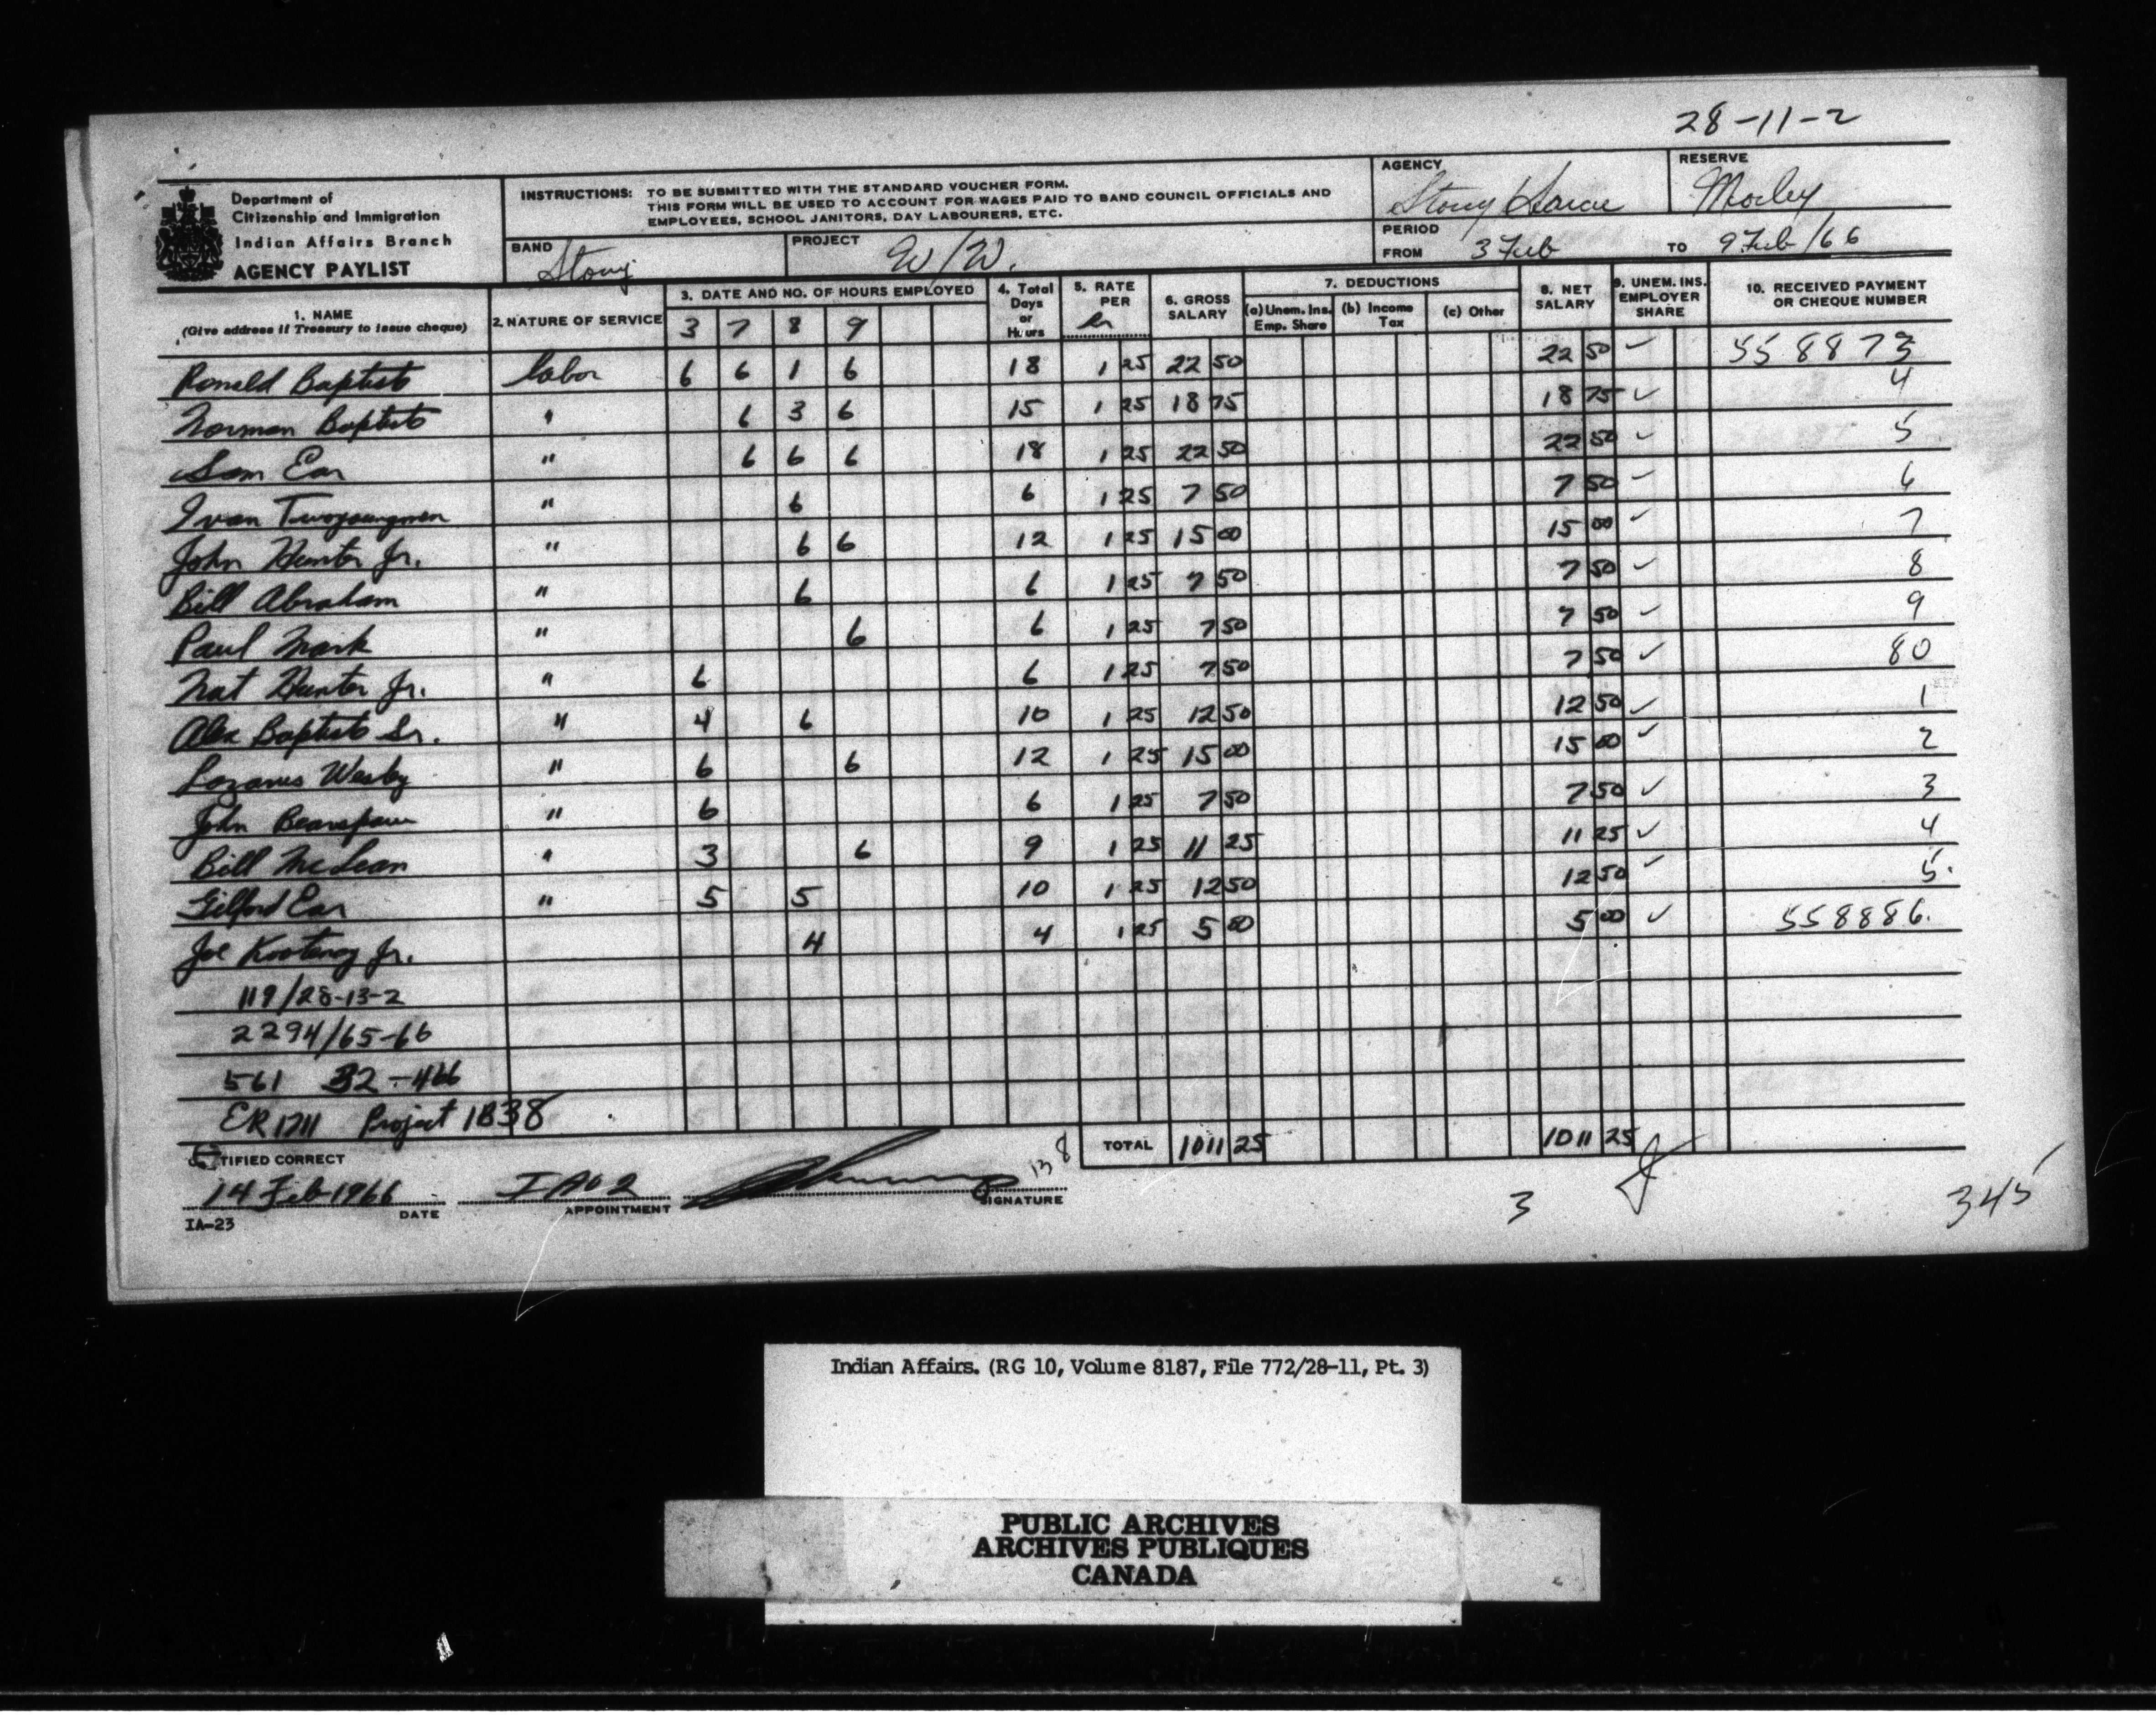 28-11-2
Department of
Citizenship and Immigration
Indian Affairs Branch
AGENCY PAYLIST
INSTRUCTIONS: TO BE SUBMITTED WITH THE STANDARD VOUCHER FORM.
THIS FORM WILL BE USED TO ACCOUNT FOR WAGES PAID TO BAND COUNCIL OFFICIALS AND
EMPLOYEES, SCHOOL JANITORS, DAY LABOURERS, ETC.
AGENCY Stony Sarcee
RESERVE Morley
BAND Stony
PROJECT W/W.
PERIOD FROM 3 Feb TO 9 Feb/66
1. NAME (Give address if Treasury to issue cheque)
2. NATURE OF SERVICE
3. DATE AND NO. OF HOURS EMPLOYED
3 7 8 9
4. Total Days or Hours
5. RATE PER hr
6. GROSS SALARY
7. DEDUCTIONS
(a) Unem. Ins. Emp. Share
(b) Income Tax
(c) Other
8. NET SALARY
9. UNEM. INS. EMPLOYER SHARE
10. RECEIVED PAYMENT OR CHEQUE NUMBER
Ronald Baptiste labor 6 6 1 6 18 1 25 22 50 22 50 ✓ 558873
Norman Baptiste " 6 3 6 15 1 25 18 75 18 75 ✓ 4
Sam Ear " 6 6 6 18 1 25 22 50 22 50 ✓ 5
Ivan Twoyoungmen " 6 6 1 25 7 50 7 50 ✓ 6
John Hunter Jr. " 6 6 12 1 25 15 00 15 00 ✓ 7
Bill Abraham " 6 6 1 25 7 50 7 50 ✓ 8
Paul Mark " 6 6 1 25 7 50 7 50 ✓ 9
Nat Hunter Jr. " 6 6 1 25 7 50 7 50 ✓ 80
Alex Baptiste Sr. " 4 6 10 1 25 12 50 12 50 ✓ 1
Lazarus Wesley " 6 6 12 1 25 15 00 15 00 ✓ 2
John Bearspaw " 6 6 1 25 7 50 7 50 ✓ 3
Bill McLean " 3 6 9 1 25 11 25 11 25 ✓ 4
Gilford Ear " 5 5 10 1 25 12 50 12 50 ✓ 5.
Joe Kootenay Jr. 4 4 1 25 5 00 5 00 ✓ 558886.
119/28-13-2
2294/65-66
561 32-466
ER 1711 Project 1B38
TOTAL 1011 25 1011 25
138
CERTIFIED CORRECT
14 Feb 1966 IAO 2
DATE APPOINTMENT SIGNATURE
IA-23
3
345
Indian Affairs. (RG 10, Volume 8187, File 772/28-11, Pt. 3)
PUBLIC ARCHIVES
ARCHIVES PUBLIQUES
CANADA